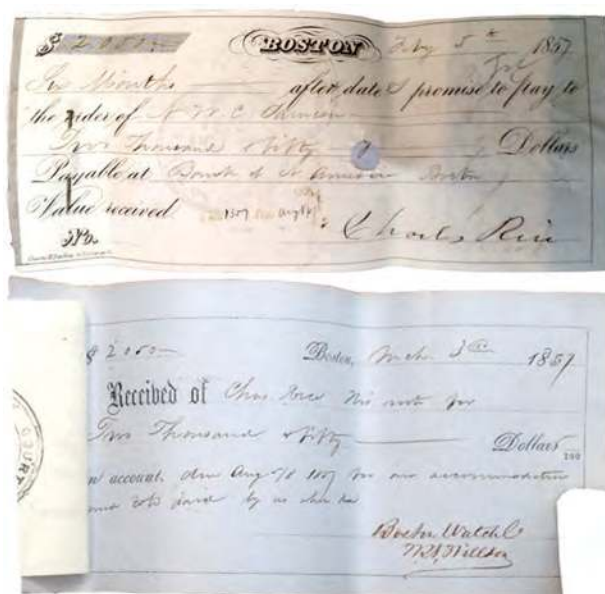 $ 2050 — BOSTON Feby 5th 1857
Six Months after date I promise to pay to
the order of N. W. C.
Two Thousand & fifty Dollars
Payable at Bank of N. America Boston
Value received
1857 Aug
No. Charles Rice
$ 2050 — Boston, 3 1857
Received of Chas Rice his note for
Two Thousand & fifty Dollars
account due Aug 5/8 1857 for our accommodation
and to be paid by us when due
Boston Watch Co
COURT